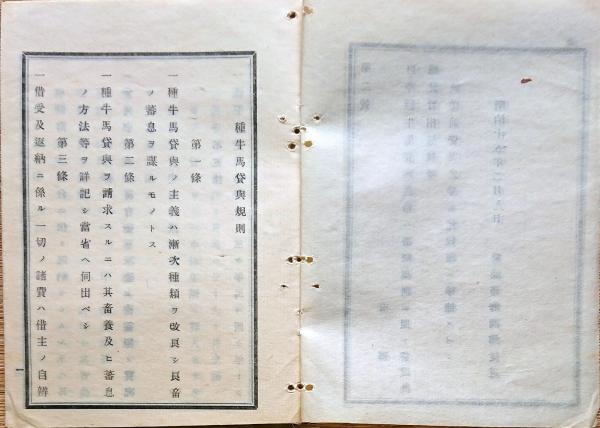 種牛馬貸與規則
第一條
一種牛馬貸與ノ主義ハ漸次種類ヲ改良シ良畜
ノ蕃息ヲ謀ルモノトス
第二條
一種牛馬貸與ヲ請求スルニハ其畜養及ヒ蕃息
ノ方法等ヲ詳記シ當省ヘ伺出ベシ
第三條
一借受及返納ニ係ル一切ノ諸費ハ借主ノ自辨
一